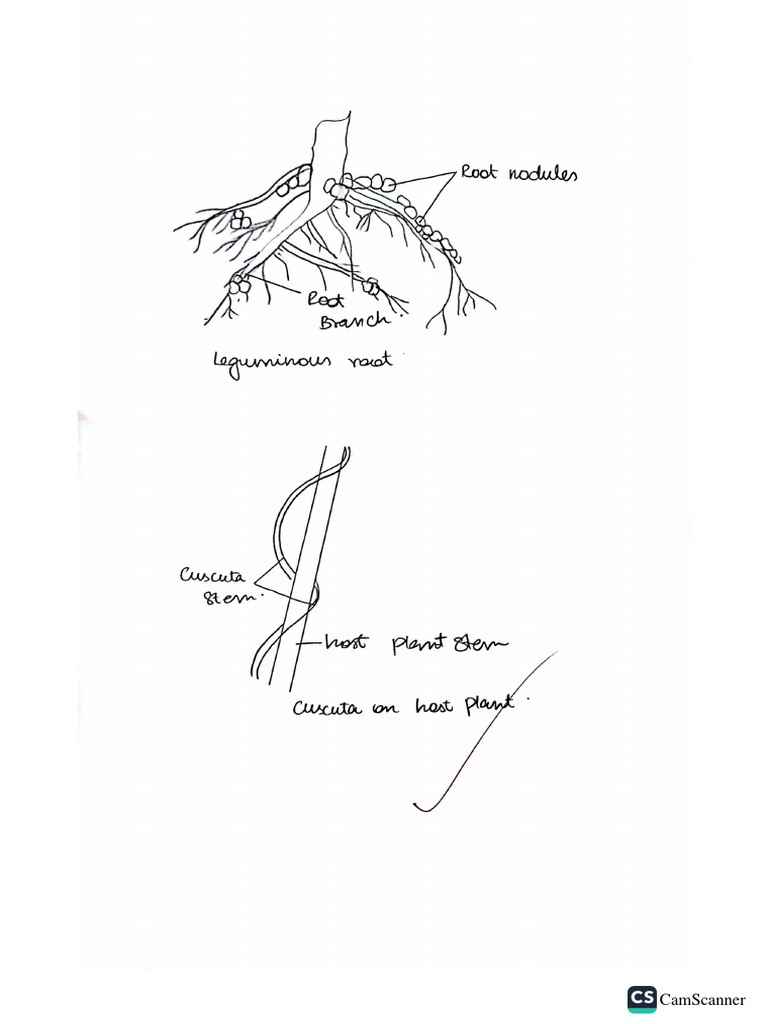 Root nodules
Root
Branch.
Leguminous root
Cuscuta
stem.
host plant stem
Cuscuta on host plant.
CS CamScanner